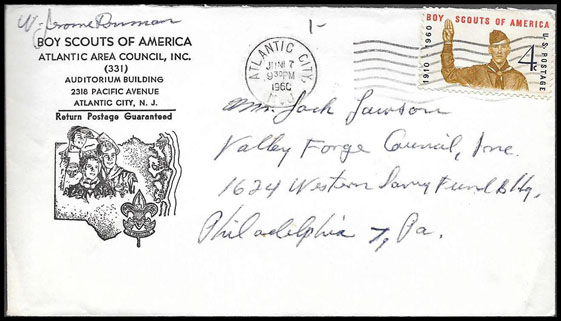 W. Jerome
1-
BOY SCOUTS OF AMERICA
ATLANTIC AREA COUNCIL, INC.
(331)
AUDITORIUM BUILDING
2318 PACIFIC AVENUE
ATLANTIC CITY, N. J.
Return Postage Guaranteed
ATLANTIC CITY,
JUN 7
930PM
1960
N.J.
1910-1960
BOY SCOUTS OF AMERICA
4¢
U.S. POSTAGE
Mr. Jack Lawson
Valley Forge Council, Inc.
1624 Western Savg Fund Bldg,
Philadelphia 7, Pa.